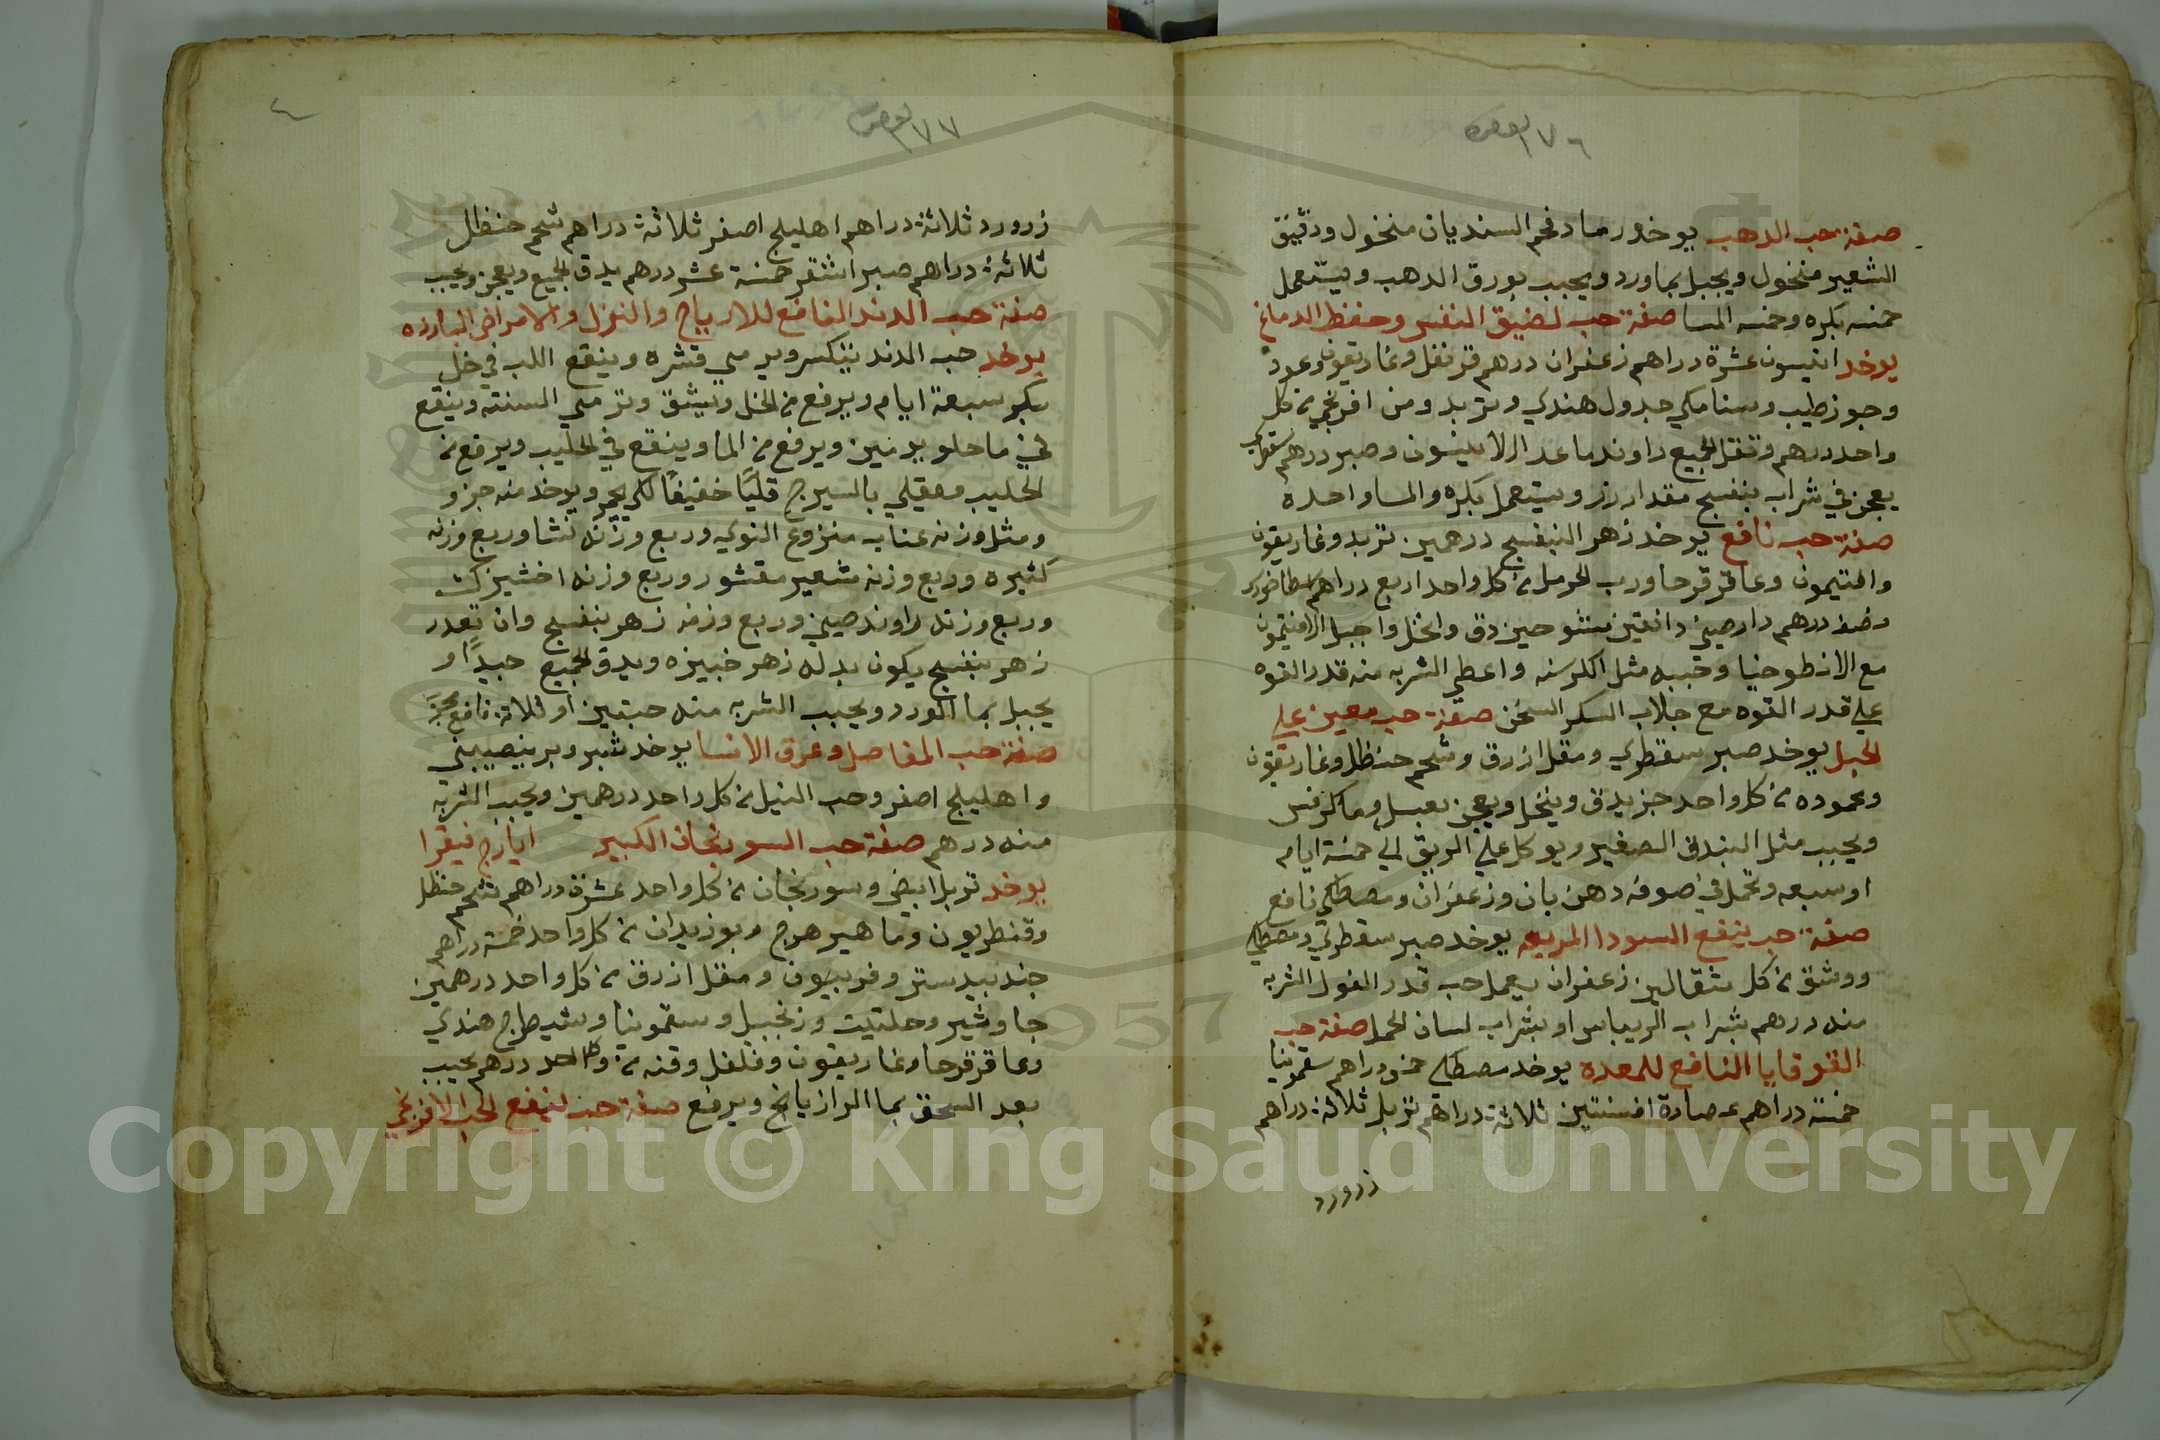 ٧٦
صفة حب الدهب يوخد رماد فحم السنديان منخول ودقيق
الشعير منخول ويجبل بماورد ويحبب بورق الدهب ويستعمل
خمسه بكره وخمسه المسا صفة حب لضيق النفس وحفظ الدماغ
يوخد انيسون عشرة دراهم زعفران درهم قرنفل وغاريقون وعود
وجوزطيب وسنامكي جدول هندي وتربد ومن افرنجي من كل
واحد درهم وثقل الجميع راوند ماعدا الانيسون وصبر درهم سقطري
يعجن في شراب بنفسج مقدار رز ويستعمل بكره والمسا واحده
صفة حب نافع يوخد زهر البنفسج درهمين تربد وغاريقون
وافتيمون وعاقرقرحا ورب الحرمل من كل واحد اربع دراهم
ونصف درهم دارصيني دانقين دق وانخل واجبل الافتيمون
مع الانطوخيا وحببه مثل الكرسنه واعطي الشربه منه قدر القوه
علي قدر القوه مع جلاب السكر السخن صفة حب معين علي
الحبل يوخد صبر سقطري ومقل ازرق وشحم حنظل وغاريقون
ومحموده من كل واحد جز يدق وينخل ويعجن بعسل وماكرفس
ويحبب مثل البندق الصغير ويوكل علي الريق الي خمسة ايام
اوسبعه وتحمل في صوفه دهن بان وزعفران ومصطكي نافع
صفة حب ينفع السودا المربعه يوخد صبر سقطري ومصطكي
ووشق من كل مثقالين زعفران يعمل حب قدر الفول الشربه
منه درهم بشراب الريباس اوبشراب لسان الحمل صفة حب
القوقايا النافع للمعده يوخد مصطكي خمس دراهم سقمونيا
خمسة دراهم عصارة افسنتين ثلاثة دراهم تربل ثلاثة دراهم
زرورد
٧٧
زرورد ثلاثة دراهم اهليلج اصفر ثلاثة دراهم شحم حنظل
ثلاثة دراهم صبر اشقر خمسة عشر درهم يدق الجميع ويعجن ويحبب
صفة حب الدند النافع للارياح والنزل والامراض البارده
يوخد حب الدند يتكسر ويرمي قشره وينقع اللب في خل
بكر سبعة ايام ويرفع من الخل ويشق وترمي السنته وينقع
في ماحلو يومين ويرفع من الما وينقع في الحليب ويرفع من
الحليب ومقلي بالسيرج قليًا خفيفًا لكي يحمر ويوخد منه جزو
ومثل وزنه عناب منزوع النوي وربع وزنه نشا وربع وزنه
كثيره وربع وزنه شعير مقشور وربع وزنه اخشيرك
وربع وزنه راوند صيني وربع وزنه زهر بنفسج وان تعدر
زهر بنفسج يكون بدله زهر خبيزه ويدق الجميع جيدًا و
يجبل بما الورد ويحبب الشربه منه حبتين او ثلاثة نافع مجرب
صفة حب المفاصل وعرق الانسا يوخد شبر وبر بنصيبني
واهليلج اصفر وحب النيل من كل واحد درهمين ويحبب الشربه
منه درهم صفة حب السورنجان الكبير ايارج فيقرا
يوخد تربل ابيض وسورنجان من كل واحد عشرة دراهم شحم حنظل
وقنطريون وماهيرهرج وبوزيدان من كل واحد خمسة دراهم
جندبيدستر وفربيون ومقل ازرق من كل واحد درهمين
جاوشير وحلتيت وزنجبيل وسقمونيا وشيطرج هندي
وعاقرقرحا وغاريقون وفلفل وقنه من كل واحد درهم يحبب
بعد السحق بما الرازيانج ويرفع صفة حب لينفع الحب الافرنجي
Copyright © King Saud University
1957